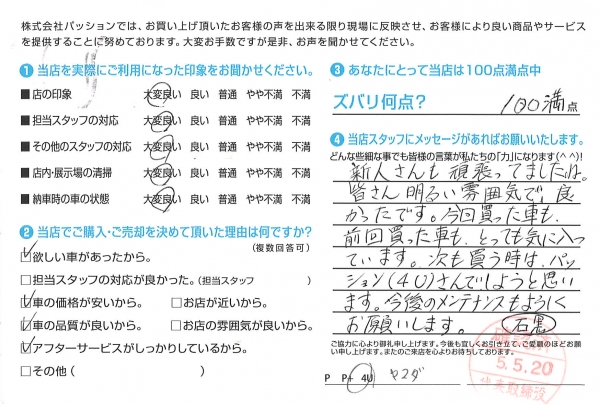 株式会社パッションでは、お買い上げ頂いたお客様の声を出来る限り現場に反映させ、お客様により良い商品やサービス
を提供することに努めております。大変お手数ですが是非、お声を聞かせてください。
❶当店を実際にご利用になった印象をお聞かせください。
■店の印象 大変良い 良い 普通 やや不満 不満
■担当スタッフの対応 大変良い 良い 普通 やや不満 不満
■その他のスタッフの対応 大変良い 良い 普通 やや不満 不満
■店内・展示場の清掃 大変良い 良い 普通 やや不満 不満
■納車時の車の状態 大変良い 良い 普通 やや不満 不満
❷当店でご購入・ご売却を決めて頂いた理由は何ですか?
(複数回答可)
☑欲しい車があったから。
□担当スタッフの対応が良かった。(担当スタッフ )
☑車の価格が安いから。 □お店が近いから。
☑車の品質が良いから。 □お店の雰囲気が良いから。
☑アフターサービスがしっかりしているから。
□その他( )
❸あなたにとって当店は100点満点中
ズバリ何点? 100満点
❹当店スタッフにメッセージがあればお願いいたします。
どんな些細な事でも皆様の言葉が私たちの「力」になります(^^)!
新人さんも頑張ってましたね。
皆さん明るい雰囲気で良
かったです。今回買った車も、
前回買った車も、とっても気に入っ
ています。次も買う時は、パッ
ション(4U)さんでしようと思い
ます。今後のメンテナンスもよろしく
お願いします。 石黒
ご協力に心より御礼申し上げます。今後も宜しくお引き立て、ご愛顧のほどお願
い申し上げます。またのご来店を心よりお待ちしております。
P P+ 4U ヤスダ
5.5.20
代表取締役